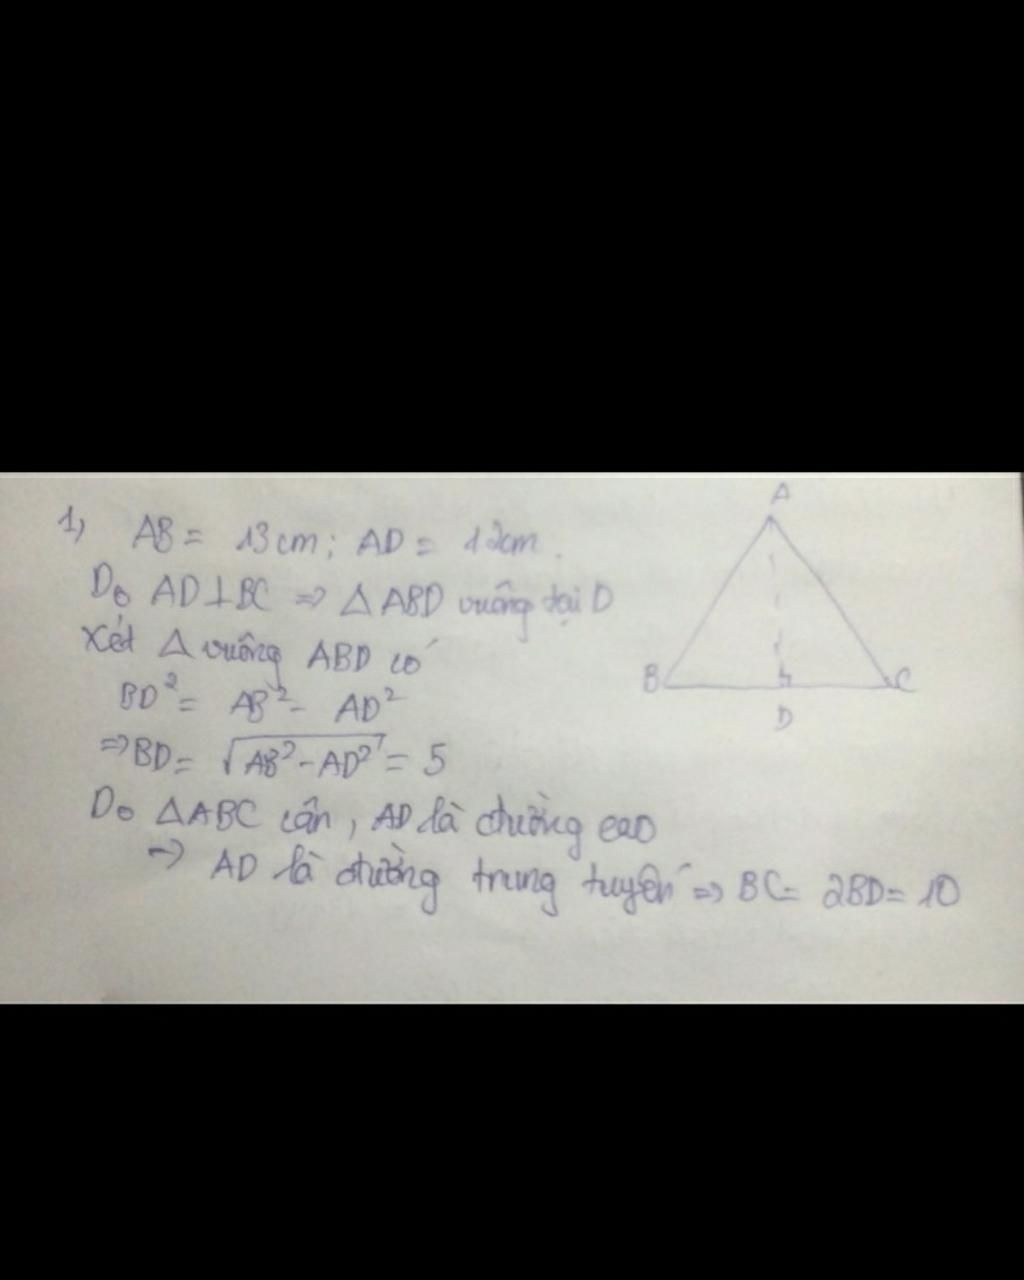 1) AB = 13cm ; AD = 12cm.
Do AD ⊥ BC => △ABD vuông tại D
Xét △ vuông ABD có
BD² = AB² - AD²
=> BD = √AB² - AD² = 5
Do △ABC cân, AD là đường cao
=> AD là đường trung tuyến => BC = 2BD = 10
A
B
C
D